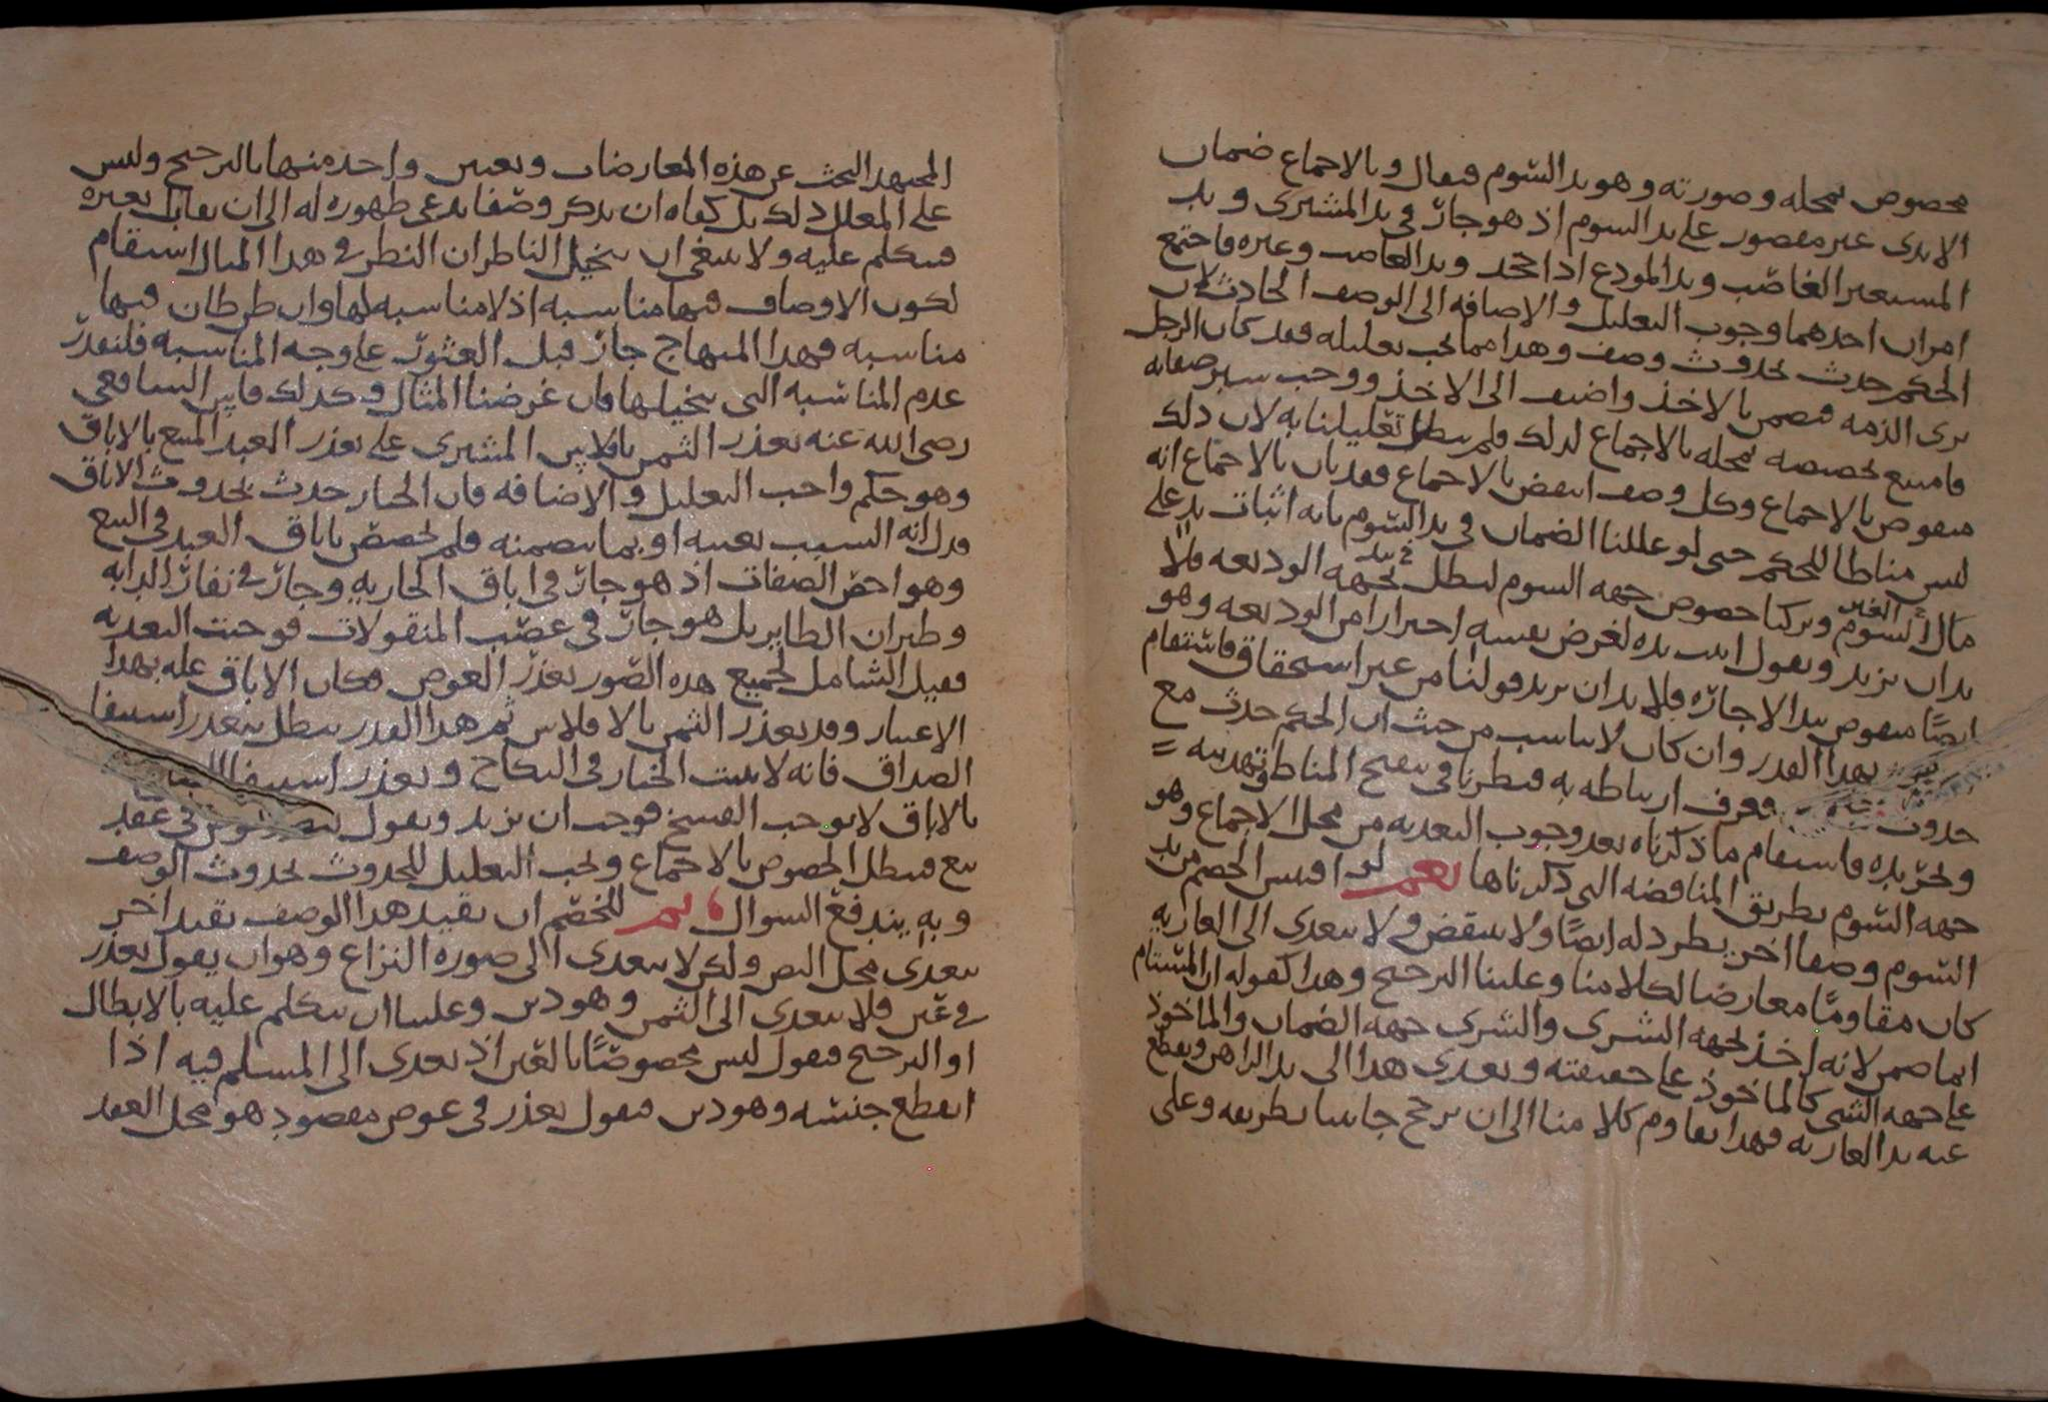 مخصوص بمحله وصورته وهو يد السوم فيقال وبالاجماع ضمان
الايدى غير مقصور على يد السوم اذ هو جار فى يد المشترى ويد
المستعير الغاصب ويد المودع اذا جحد ويد الغاصب وغيره فاجتمع
امران احدهما وجوب التعليل والاضافه الى الوصف الحادث لان
الحكم حدث بحدوث وصف وهذا مما يجب تعليله فقد كان الرجل
برى الذمه فضمن بالاخذ واضيف الى الاخذ ووجب سبر صفاته
فامتنع تخصيصه بمحله بالاجماع لذلك فلم يبطل تعليلنا به لان ذلك
منقوض بالاجماع وكل وصف انتقض بالاجماع فقد بان بالاجماع انه
ليس مناطا للحكم حتى لو عللنا الضمان فى يد السوم بانه اثبات يد على
مال الغير وتركنا خصوص جهه السوم لبطل بجهه الوديعه فلا
بد ان نزيد ونقول اثبت يده لغرض نفسه احترازا من الوديعه وهو
ايضًا منقوض بيد الاجاره فلا بد ان نزيد قولنا من غير استحقاق فاستقام
بهذا القدر وان كان لا يناسب من حيث ان الحكم حدث مع
حدوث فعرف ارتباطه به فنظرنا فى تنقيح المناط وتهذيبه
وتجريده فاستقام ما ذكرناه بعد وجوب التعديه من محل الاجماع وهو
جهه السوم بطريق المناقضه التى ذكرناها نعم لو اقتبس الخصم من يد
السوم وصفا اخر يطرد له ايضًا ولا ينتقض ولا يتعدى الى العاريه
كان مقاومًا معارضا لكلامنا وعلينا الترجيح وهذا كقوله ان المستام
انما ضمن لانه اخذ بجهه الشرى والشرى جهه الضمان والماخوذ
على جهه الشى كالماخوذ على حقيقته ويعدى هذا الى يد الراهن ويقطع
عنه يد العاريه فهذا يقاوم كلامنا الى ان يرجح جانبنا بطريقه وعلى
المجتهد البحث عن هذه المعارضات وتعيين واحد منها بالترجيح وليس
على المعلل ذلك بل كفاه ان يذكر وصفا يدعى ظهوره له الى ان يقابل بغيره
فيتكلم عليه ولا ينبغى ان يتخيل الناظر ان النظر فى هذا المثال استقام
لكون الاوصاف فيها مناسبه اذ لا مناسبه لها وان ظن ظان فيها
مناسبه فهذا المنهاج جار قبل العثور على وجه المناسبه فلنقدر
عدم المناسبه التى يتخيلها فان غرضنا المثال وكذلك قاس الشافعى
رضى الله عنه تعذر الثمن بافلاس المشترى على تعذر العبد المبيع بالاباق
وهو حكم واجب التعليل والاضافه فان الخيار حدث بحدوث الاباق
فدل انه السبب بعينه او بما يتضمنه فلم يختص باباق العبد فى البيع
وهو اخص الصفات اذ هو جار فى اباق الجاريه وجار فى نفار الدابه
وطيران الطاير بل هو جار فى غصب المنقولات فوجبت التعديه
فقيل الشامل لجميع هذه الصور تعذر العوض فكان الاباق عله بهذا
الاعتبار وقد تعذر الثمن بالافلاس ثم هذا القدر يبطل بتعذر استيفا
الصداق فانه لا يثبت الخيار فى النكاح وتعذر استيفا
بالاباق لا يوجب الفسخ فوجب ان نزيد ونقول فى عقد
بيع فيبطل الخصوص بالاجماع ويجب التعليل للحدوث بحدوث الوصف
وبه يندفع السوال نعم للخصم ان يقيد هذا الوصف بقيد اخر
يتعدى محل النص ولكن لا يتعدى الى صوره النزاع وهو ان يقول تعذر
فى عين فلا يتعدى الى الثمن وهو دين وعلينا ان نتكلم عليه بالابطال
او الترجيح فنقول ليس مخصوصًا بالعين اذ يعدى الى المسلم فيه اذا
انقطع جنسه وهو دين فنقول تعذر فى عوض مقصود هو محل العقد